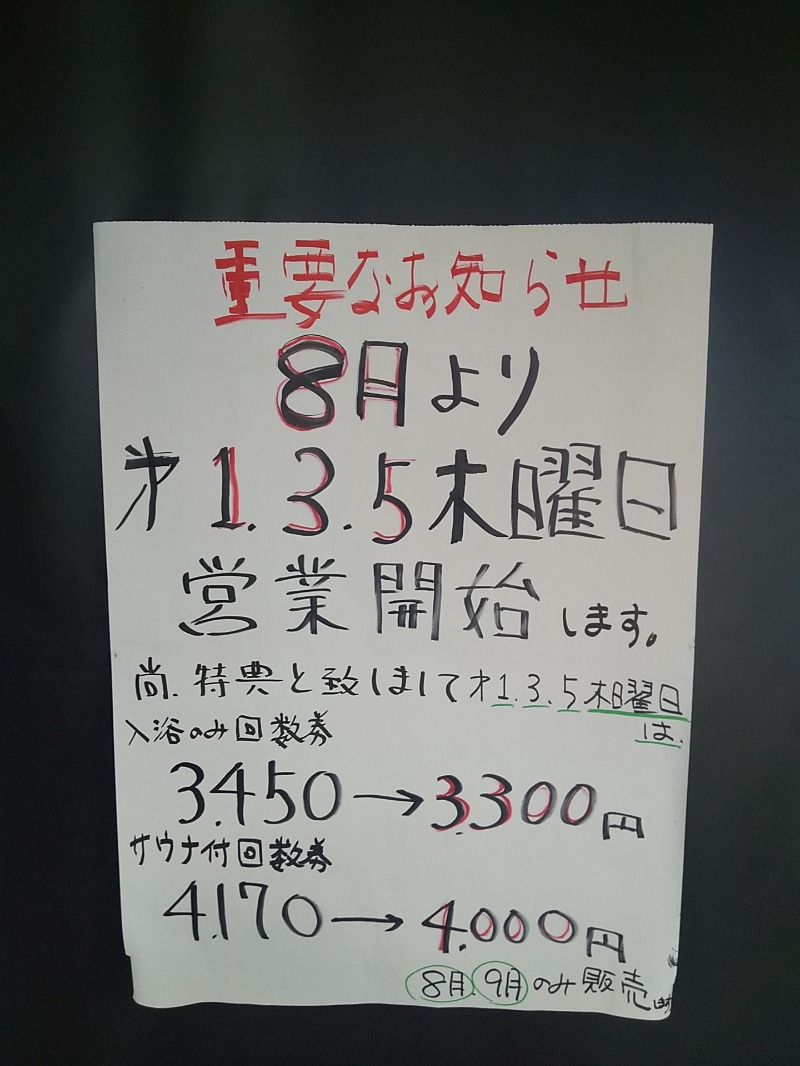 重要なお知らせ
8月より
才1.3.5木曜日
営業開始します。
尚、特典と致しまして才1.3.5木曜日
は、
入浴のみ回数券
3.450→3.300円
サウナ付回数券
4.170→4.000円
8月.9月のみ販売